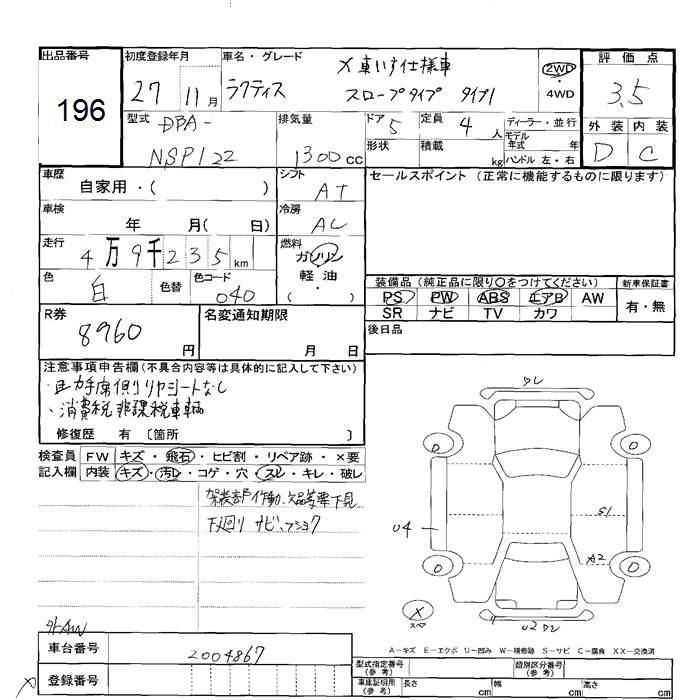 出品番号 初度登録年月 車名・グレード 評価点
196
27 11月 ラクティス X 車いす仕様車 2WD・4WD 3.5
スロープタイプ タイプI
型式 DBA- 排気量 ドア 5 定員 4人 ディーラー・並行 外装 内装
NSP122 1300cc 形状 積載 kg モデル年式 年 D C
ハンドル 左・右
車歴 自家用・( ) シフト AT セールスポイント (正常に機能するものに限ります)
車検 年 月( 日) 冷房 AC
走行 4万9千235km 燃料 ガソリン
軽油
( ・ )
色 白 色替 色コード 040
装備品 (純正品に限り○をつけてください) 新車保証書
PS PW ABS エアB AW 有・無
SR ナビ TV カワ
R券 8960円 名変通知期限 月 日 後日品
注意事項申告欄(不具合内容等は具体的に記入して下さい)
・助手席側リヤシートなし
・消費税非課税車輌
修復歴 有 〔箇所 〕
検査員 FW キズ・飛石・ヒビ割・リペア跡・×要
記入欄 内装 キズ・汚レ・コゲ・穴・スレ・キレ・破レ
架装部作動、欠品等要下見
下廻り サビ、フショク
ワレ
D O
U4 S1
A2
O O
X
スペア
U2 ワレ
外AW
A-キズ E-エクボ U-凹み W-補修跡 S-サビ C-腐食 XX-交換済
車台番号 2004867
登録番号
型式指定番号(参考) 類別区分番号(参考)
車庫証明用(参考) 長さ cm 幅 cm 高さ cm